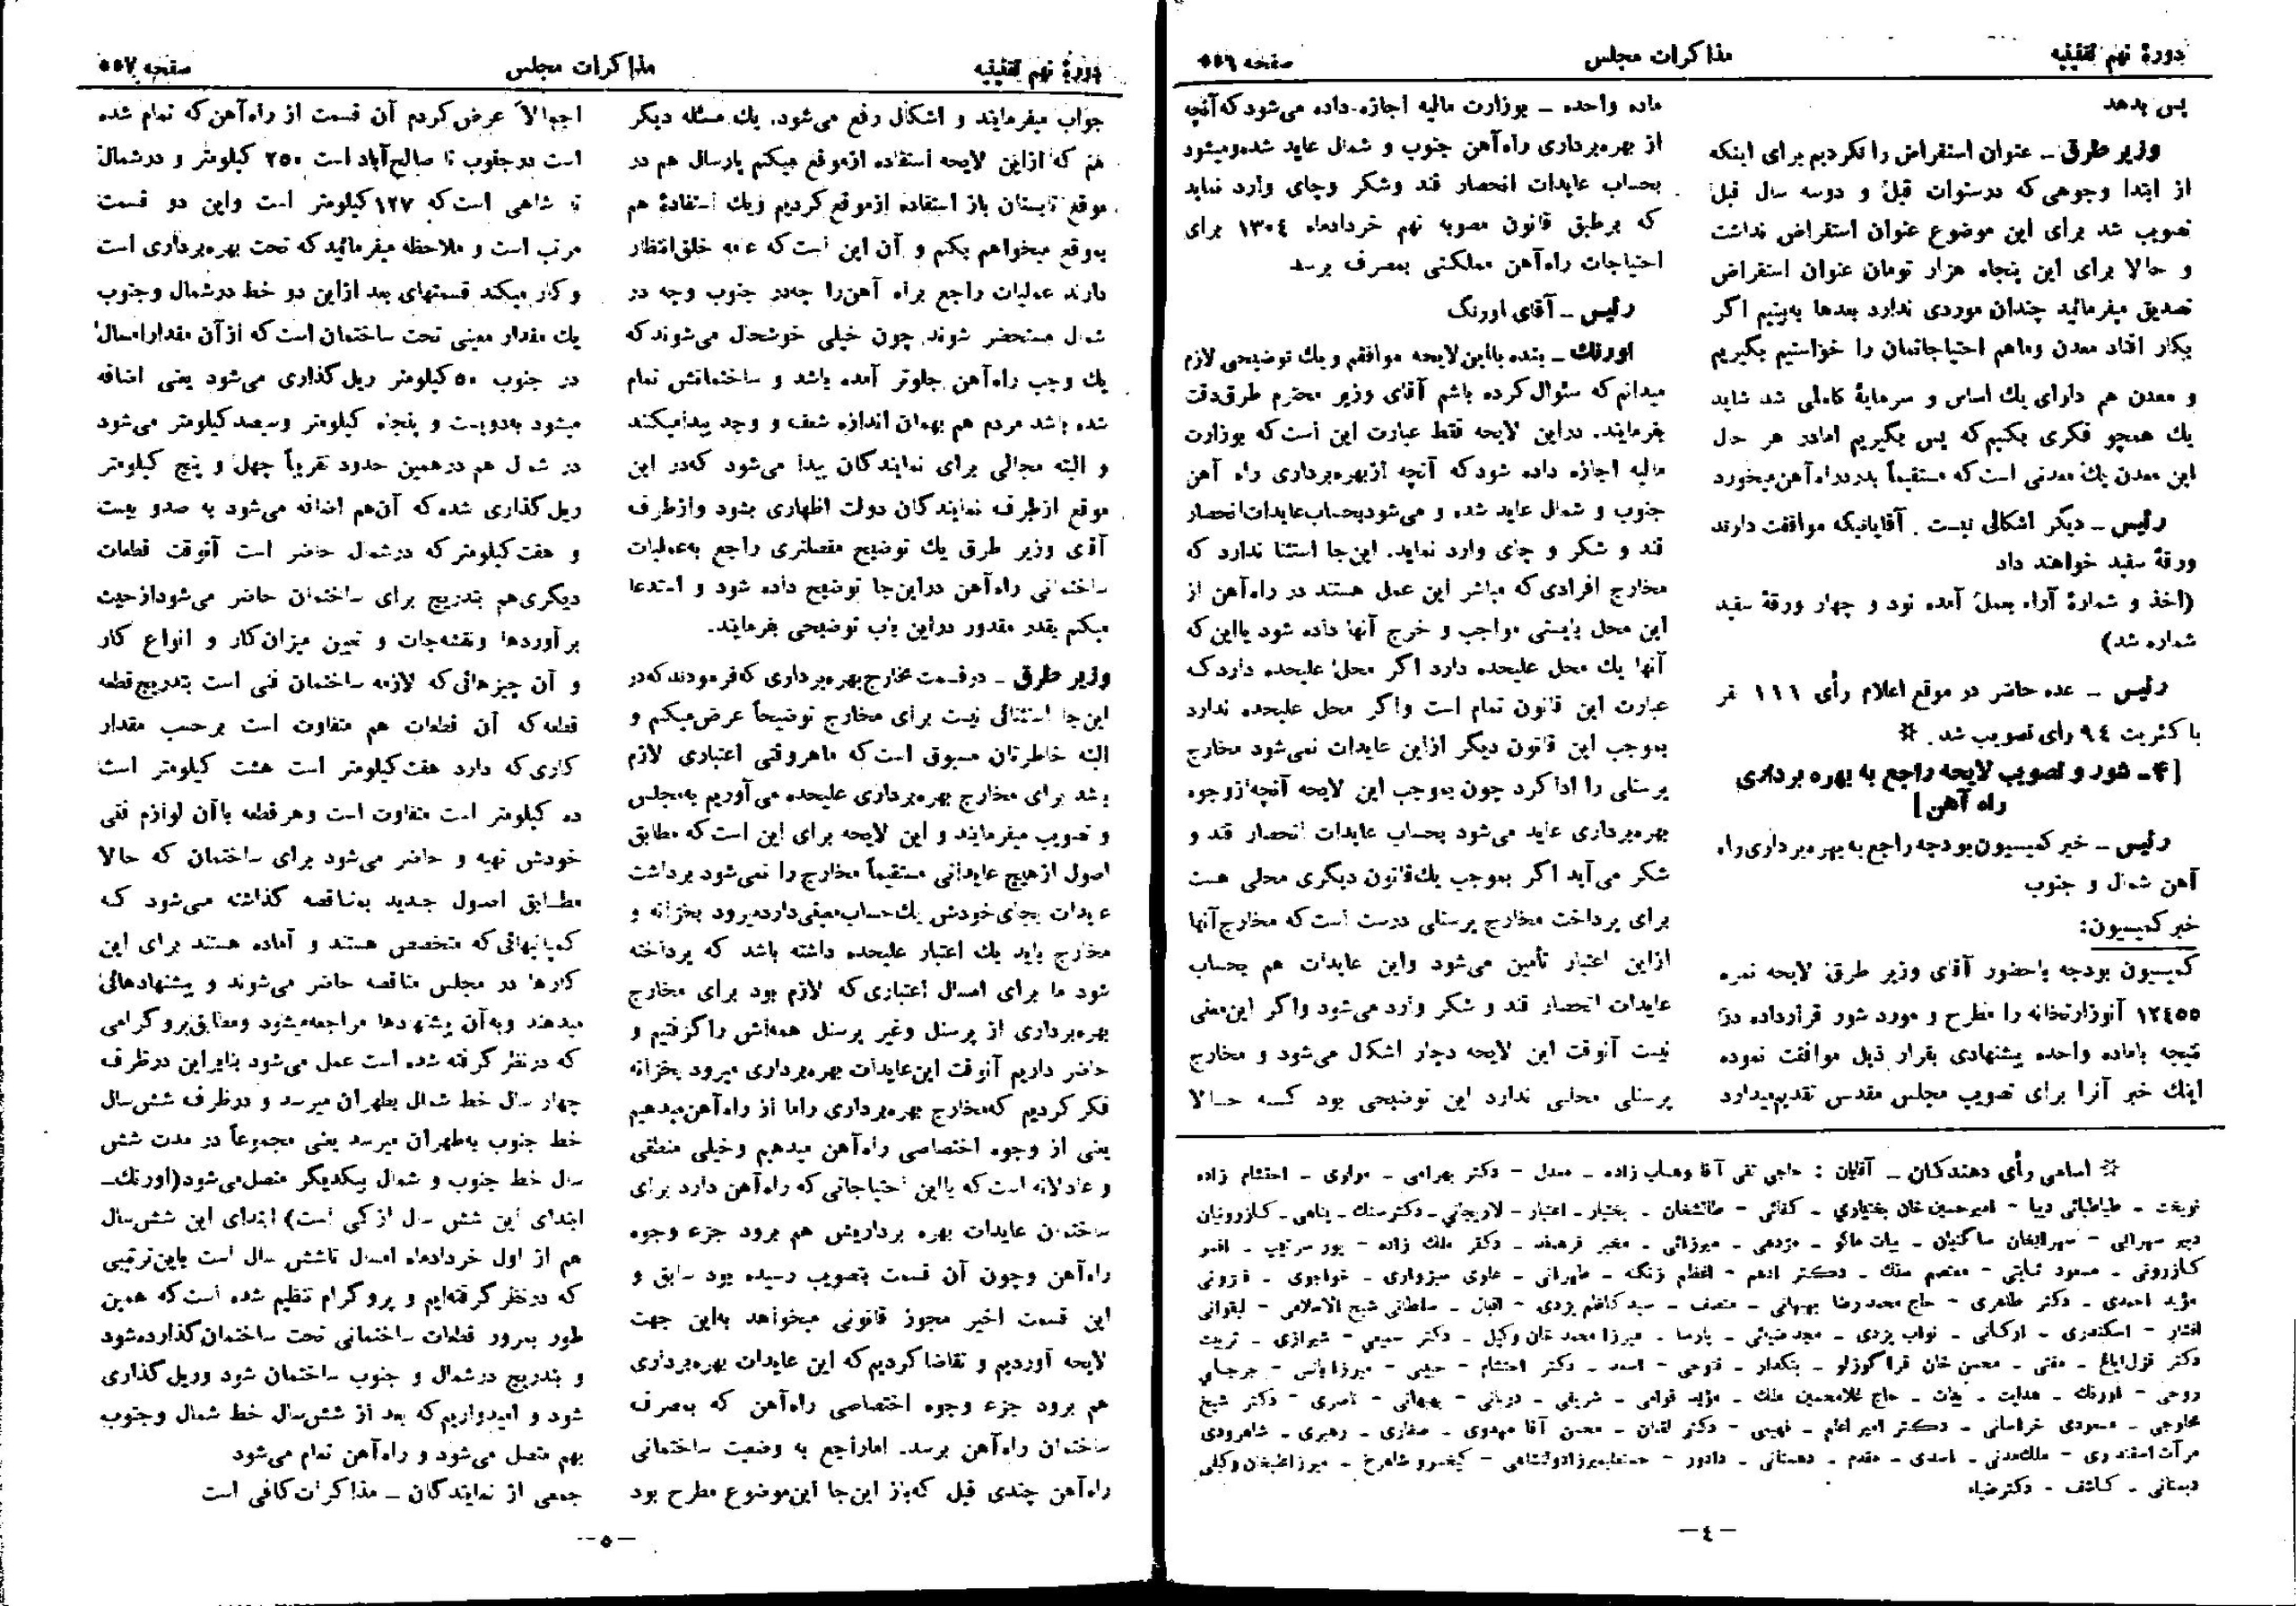 دورهٔ نهم تقنینیه
مذاکرات مجلس
صفحه ۵۵۶
پس بدهد
وزیر طرق ـ عنوان استقراض را نکردیم برای اینکه
از ابتدا وجوهی که درسنوات قبل و دوسه سال قبل
تصویب شد برای این موضوع عنوان استقراض نداشت
و حالا برای این پنجاه هزار تومان عنوان استقراض
تصدیق میفرمائید چندان موردی ندارد بعدها به‌بینیم اگر
بکار افتاد معدن وماهم احتیاجاتمان را خواستیم بگیریم
و معدن هم دارای یك اساس و سرمایهٔ کاملی شد شاید
یك همچو فکری بکنیم که پس بگیریم امادر هر حال
این معدن یك معدنی است که مستقیماً بدردراه‌آهن‌میخورد
رئیس ـ دیگر اشکالی نیست . آقایانیکه موافقت دارند
ورقهٔ سفید خواهند داد
(اخذ و شمارهٔ آراء بعمل آمده نود و چهار ورقهٔ سفید
شماره شد)
رئیس ـ عده حاضر در موقع اعلام رأی ۱۱۱ نفر
با کثریت ۹۴ رأی تصویب شد . ※
[۴ـ شور و تصویب لایحه راجع به بهره برداری
راه آهن]
رئیس ـ خبر کمیسیون بودجه راجع به بهره‌برداری راه
آهن شمال و جنوب
خبر کمیسیون:
کمیسیون بودجه باحضور آقای وزیر طرق لایحه نمره
۱۲۴۵۵ آنوزارتخانه را مطرح و مورد شور قرارداده در
نتیجه باماده واحده پیشنهادی بقرار ذیل موافقت نموده
اینك خبر آنرا برای تصویب مجلس مقدس تقدیم‌میدارد
ماده واحده ـ بوزارت مالیه اجازه داده می‌شود که آنچه
از بهره‌برداری راه‌آهن جنوب و شمال عاید شده‌ومیشود
بحساب عایدات انحصار قند وشکر وچای وارد نماید
که برطبق قانون مصوبه نهم خردادماه ۱۳۰۴ برای
احتیاجات راه‌آهن مملکتی بمصرف برسد
رئیس ـ آقای اورنگ
اورنك ـ بنده بااین لایحه موافقم و یك توضیحی لازم
میدانم که سئوال کرده باشم آقای وزیر محترم طرق‌دقت
بفرمایند. دراین لایحه فقط عبارت این است که بوزارت
مالیه اجازه داده شود که آنچه ازبهره‌برداری راه آهن
جنوب و شمال عاید شده و می‌شودبحساب‌عایدات‌انحصار
قند و شکر و چای وارد نماید. این‌جا استثنا ندارد که
مخارج افرادی که مباشر این عمل هستند در راه‌آهن از
این محل بایستی مواجب و خرج آنها داده شود یااین که
آنها یك محل علیحده دارد اگر محل علیحده دارد که
عبارت این قانون تمام است واگر محل علیحده ندارد
بموجب این قانون دیگر ازاین عایدات نمی‌شود مخارج
پرسنلی را اداکرد چون بموجب این لایحه آنچه‌ازوجوه
بهره‌برداری عاید می‌شود بحساب عایدات انحصار قند و
شکر می‌آید اگر بموجب یك‌قانون دیگری محلی هست
برای پرداخت مخارج پرسنلی درست است که مخارج آنها
ازاین اعتبار تأمین می‌شود واین عایدات هم بحساب
عایدات انحصار قند و شکر وارد می‌شود واگر این‌معنی
نیست آنوقت این لایحه دچار اشکال می‌شود و مخارج
پرسنلی محلی ندارد این توضیحی بود که حالا
※ اسامی رأی دهندکان ـ آقایان : حاجی تقی آقا وهاب زاده ـ معدل ـ دکتر بهرامی ـ مولوی ـ احتشام زاده
نوبخت ـ طباطبائی دیبا ـ امیرحسین خان بختیاری ـ کفائی ـ طالشخان ـ بختیار ـ اعتبار ـ لاریجانی ـ دکترسنك ـ پناهی ـ کازرونیان
دبیر سهرابی ـ سهرابخان ساکنیان ـ بیات ماکو ـ مژدهی ـ میرزائی ـ مخبر فرهمند ـ دکتر ملك زاده ـ پور سرتیپ ـ افسر
کازرونی ـ مسعود ثابتی ـ معتصم سنك ـ دکتر ادهم ـ اعظم زنگنه ـ طهرانی ـ علوی سبزواری ـ خواجوی ـ قزونی
مؤید احمدی ـ دکتر طاهری ـ حاج محمدرضا بهبهانی ـ منصف ـ سید کاظم یزدی ـ اقبال ـ سلطانی شیخ الاسلامی ـ لیقوانی
افشار ـ اسکندری ـ ارکانی ـ نواب یزدی ـ مجد ضیائی ـ پارسا ـ میرزا محمد خان وکیل ـ دکتر سمیعی ـ شیرازی ـ تربیت
دکتر قزل‌ایاغ ـ مفتی ـ محسن خان قراگوزلو ـ بنکدار ـ فتوحی ـ اسعد ـ دکتر احتشام ـ حبیبی ـ میرزایانس ـ جرجانی
روحی ـ اورنك ـ هدایت ـ بیات ـ حاج غلامحسین ملك ـ مؤید قوامی ـ شریفی ـ دربانی ـ بهبهانی ـ ناصری ـ دکتر شیخ
مخلوجی ـ مسعودی خراسانی ـ دکتر امیر اعلم ـ فهیمی ـ دکتر لقمان ـ محسن آقا مهدوی ـ صفاری ـ رهبری ـ شاهرودی
مرآت اسفندری ـ ملك‌مدنی ـ اسدی ـ مقدم ـ دهستانی ـ دادور ـ کیخسرو شاهرخ ـ وکیلی
دبستانی ـ کاشف ـ دکتر ضیاء
ـ ۴ ـ
دورهٔ نهم تقنینیه
مذاکرات مجلس
صفحه ۵۵۷
جواب میفرمایند و اشکال رفع می‌شود. یك مسئله دیگر
هم که ازاین لایحه استفاده ازموقع میکنم پارسال هم در
موقع تابستان باز استفاده ازموقع کردیم ویك استفادهٔ هم
به‌وقع میخواهم بکنم و آن این است که عامه خلق انتظار
دارند عملیات راجع براه آهن‌را چه‌در جنوب وچه در
شمال مستحضر شوند چون خیلی خوشحال می‌شوند که
یك وجب راه‌آهن جلوتر آمده باشد و ساختمانش تمام
شده باشد مردم هم بهمان اندازه شعف و وجد پیدامیکنند
و البته مجالی برای نمایندکان پیدا می‌شود که‌در این
موقع ازطرف نمایندکان دولت اظهاری بشود وازطرف
آقای وزیر طرق یك توضیح مفصلتری راجع به‌عملیات
ساختمانی راه‌آهن دراین‌جا توضیح داده شود و استدعا
میکنم بقدر مقدور دراین باب توضیحی بفرمایند.
وزیر طرق ـ درقسمت مخارج بهره‌برداری که‌فرمودند که‌در
این‌جا استثنائی نیست برای مخارج توضیحاً عرض‌میکنم و
البته خاطرتان مسبوق است که ماهروقتی اعتباری لازم
باشد برای مخارج بهره‌برداری علیحده می‌آوریم به‌مجلس
و تصویب میفرمایند و این لایحه برای این است که مطابق
اصول ازهیچ عایداتی مستقیماً مخارج را نمی‌شود برداشت
عایدات بجای خودش یك‌حساب‌معینی‌داردمیرود بخزانه و
مخارج باید یك اعتبار علیحده داشته باشد که پرداخته
شود ما برای امسال اعتباری که لازم بود برای مخارج
بهره‌برداری از پرسنل وغیر پرسنل همه‌اش راگرفتیم و
حاضر داریم آنوقت این‌عایدات بهره‌برداری میرود بخزانه
فکر کردیم که‌مخارج بهره‌برداری راما از راه‌آهن‌میدهیم
یعنی از وجوه اختصاصی راه‌آهن میدهیم وخیلی منطقی
و عادلانه است که بااین احتیاجاتی که راه‌آهن دارد برای
ساختمان عایدات بهره برداریش هم برود جزء وجوه
راه‌آهن وچون آن قسمت بتصویب رسیده بود سابق و
این قسمت اخیر مجوز قانونی میخواهد به‌این جهت
لایحه آوردیم و تقاضاکردیم که این عایدات بهره‌برداری
هم برود جزء وجوه اختصاصی راه‌آهن که بمصرف
ساختمان راه‌آهن برسد. اماراجع به وضعیت ساختمانی
راه‌آهن چندی قبل که‌باز این‌جا این‌موضوع مطرح بود
اجمالاً عرض کردم آن قسمت از راه‌آهن که تمام شده
است درجنوب تا صالح‌آباد است ۲۵۰ کیلومتر و درشمال
تا شاهی است که ۱۲۷ کیلومتر است واین دو قسمت
مرتب است و ملاحظه میفرمائید که تحت بهره‌برداری است
و کار میکند قسمتهای بعد ازاین دو خط درشمال وجنوب
یك مقدار معینی تحت ساختمان است که ازآن مقدارامسال
در جنوب ۵۰ کیلومتر ریل‌گذاری می‌شود یعنی اضافه
میشود به‌دویست و پنجاه کیلومتر وسیصدکیلومتر می‌شود
در شمال هم درهمین حدود تقریباً چهل و پنج کیلومتر
ریل‌گذاری شده که آن‌هم اضافه می‌شود به صدو بیست
و هفت کیلومتر که درشمال حاضر است آنوقت قطعات
دیگری‌هم بتدریج برای ساختمان حاضر می‌شودازحیث
برآوردها ونقشه‌جات و تعیین میزان‌کار و انواع کار
و آن چیزهائی که لازمه ساختمان فنی است بتدریج‌قطعه
قطعه که آن قطعات هم متفاوت است برحسب مقدار
کاری که دارد هفت‌کیلومتر است هشت کیلومتر است
ده کیلومتر است متفاوت است وهر قطعه باآن لوازم فنی
خودش تهیه و حاضر می‌شود برای ساختمان که حالا
مطابق اصول جدید به‌مناقصه گذاشته می‌شود که
کمپانیهائی که متخصص هستند و آماده هستند برای این
کارها در مجلس مناقصه حاضر می‌شوند و پیشنهادهائی
میدهند وبه‌آن پیشنهادها مراجعه‌میشود ومطابق‌پروگرامی
که درنظر گرفته شده است عمل می‌شود بنابراین درظرف
چهار سال خط شمال بطهران میرسد و درظرف شش‌سال
خط جنوب به‌طهران میرسد یعنی مجموعاً در مدت شش
سال خط جنوب و شمال بیکدیگر متصل‌می‌شود(اورنك‌ـ
ابتدای این شش سال ازکی است) ابتدای این شش‌سال
هم از اول خردادماه امسال تاشش سال است باین‌ترتیبی
که درنظرگرفته‌ایم و پروگرام تنظیم شده است که همین
طور بمرور قطعات ساختمانی تحت ساختمان‌گذارده‌شود
و بتدریج درشمال و جنوب ساختمان شود وریل گذاری
شود و امیدواریم که بعد از شش‌سال خط شمال وجنوب
بهم متصل می‌شود و راه‌آهن تمام می‌شود
جمعی از نمایندکان ـ مذاکرات کافی است
ـ ۵ ـ